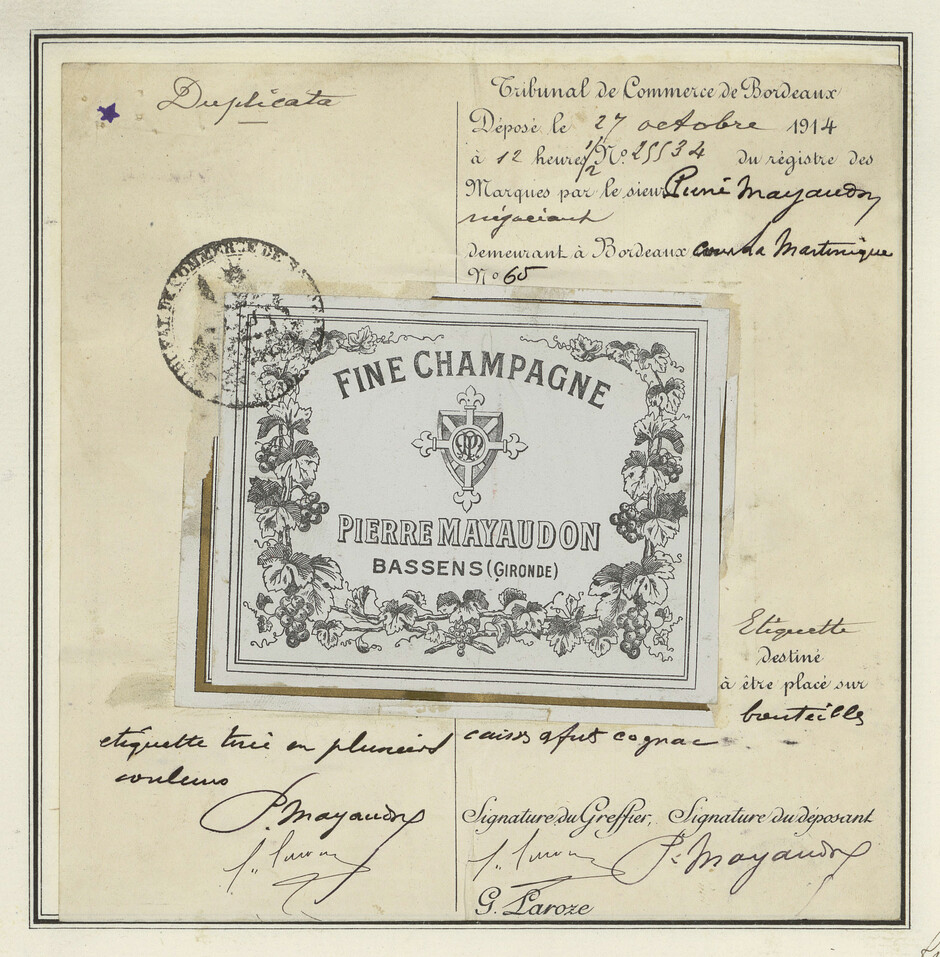 Duplicata
Tribunal de Commerce de Bordeaux
Déposé le 27 octobre 1914
à 12 heures 1/2 N° 25534 du régistre des
Marques par le sieur Pierre Mayaudon
négociant
demeurant à Bordeaux cours la Martinique
N° 65
FINE CHAMPAGNE
PIERRE MAYAUDON
BASSENS (GIRONDE)
Etiquette
destiné
à être placé sur
bouteilles
caisses & fûts cognac
etiquette tirée en plusieurs
couleurs
P. Mayaudon
Signature du Greffier, Signature du déposant
P. Mayaudon
G. Laroze